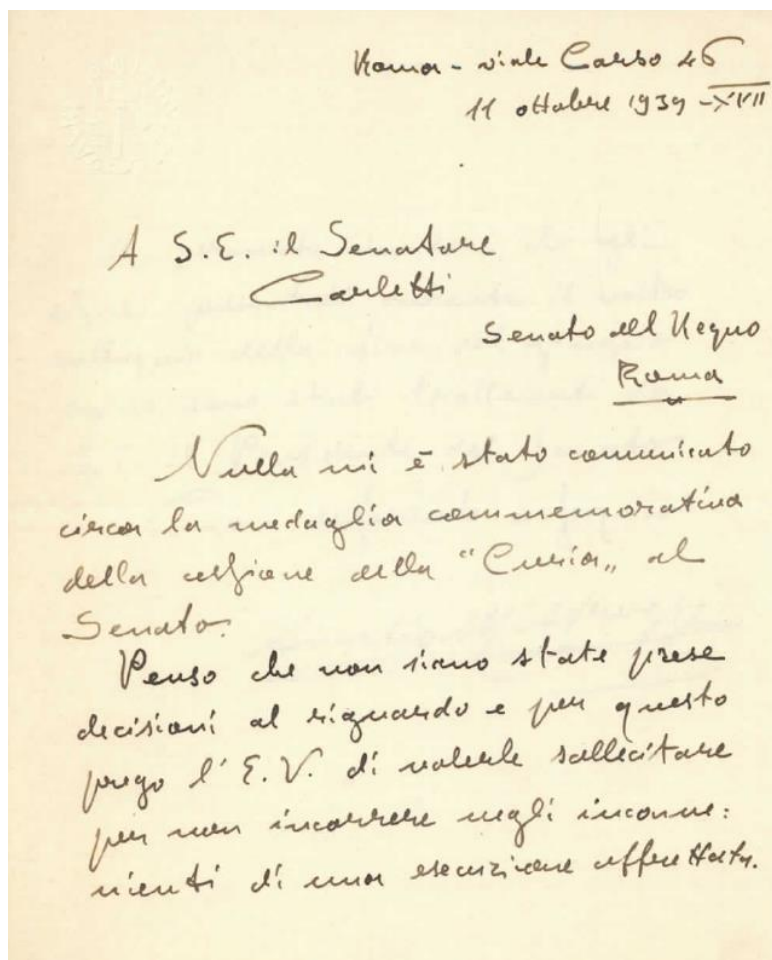 Roma - viale Carso 46
11 ottobre 1939 - XVII
A S.E. il Senatore
Carletti
Senato del Regno
Roma
Nulla mi è stato comunicato
circa la medaglia commemorativa
della cessione della "Curia„ al
Senato.
Penso che non siano state prese
decisioni al riguardo e per questo
prego l'E.V. di volerle sollecitare
per non incorrere negli inconve:
nienti di una esecuzione affrettata.